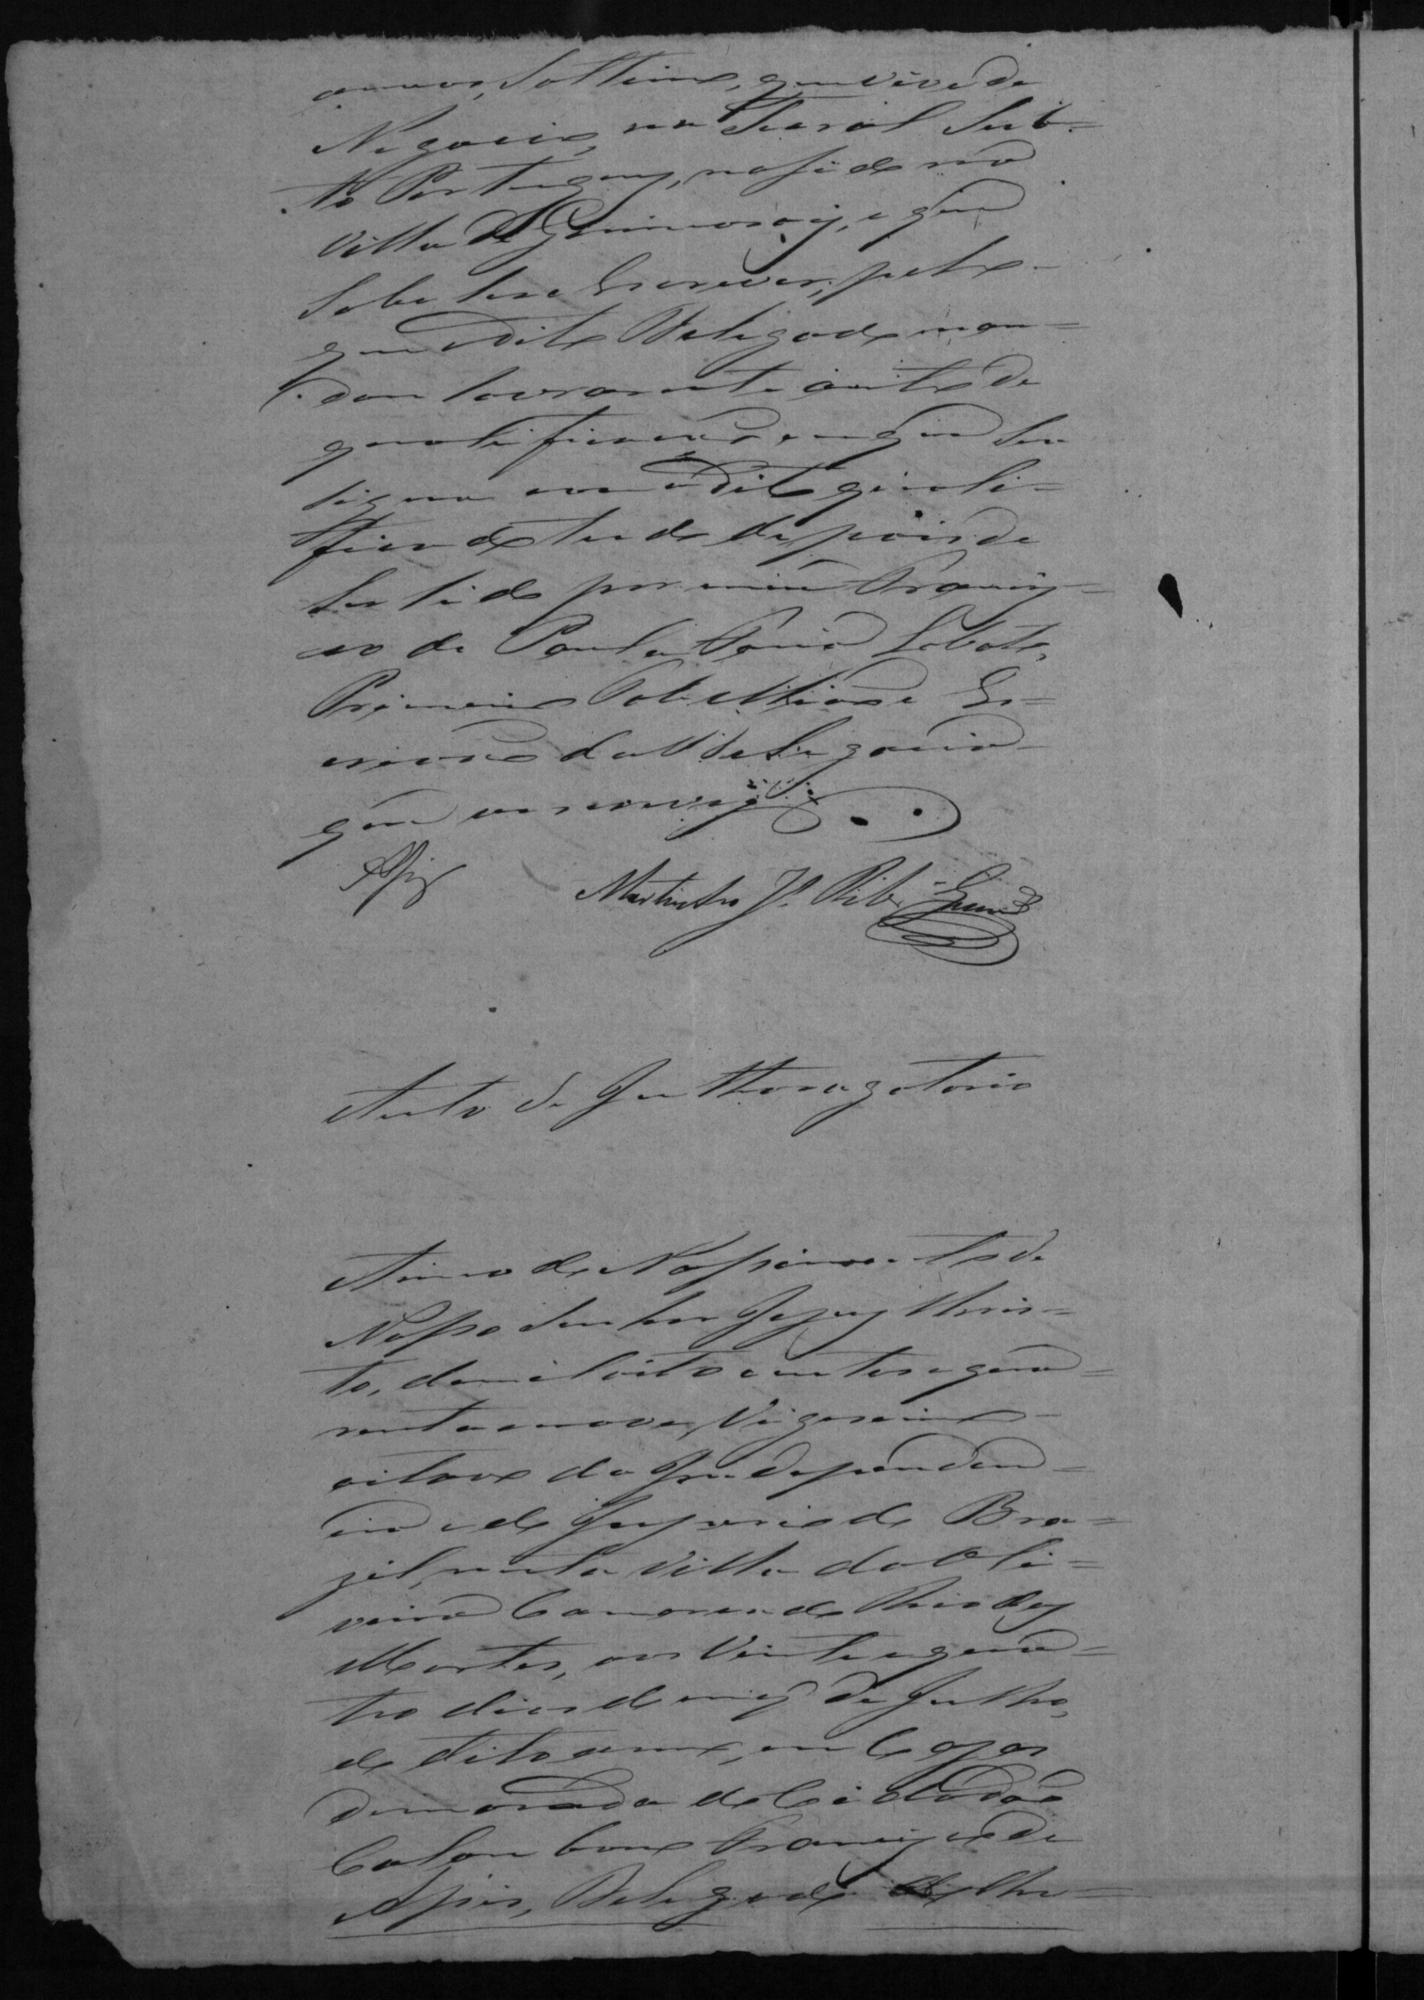 annos, Solteiro, que vive de
Negocio, natural Sub-
to Portuguez, nascido na
Villa de Guimaraẽs, e que
sabe ler e Escrever, pelo
que o dito Delegado man-
dou lavrar este auto de
qualificação em que se
signa com o dito quali-
ficado tudo depois de
ser lido por mim Francis-
co de Paula Faria Lobato,
Primeiro Tabellião e Es-
crivão da Delegacia
que escrevy
Assis Martinho Je. Ribº Guimes
Auto de Intterrogatorio
Anno do Nascimento de
Nosso Senhor Jezus Chris-
to, de mil oito centos e qua-
renta e nove, Vigesimo
oitavo da Independen-
cia e do Imperio do Bra-
zil, nesta Villa da Oli-
veira Comarca do Rio das
Mortes, aos Vinte e qua-
tro dias do mez de Julho,
do dito anno, em Cazas
de morada do Cidadão
Francisco de
Assis, Delegado